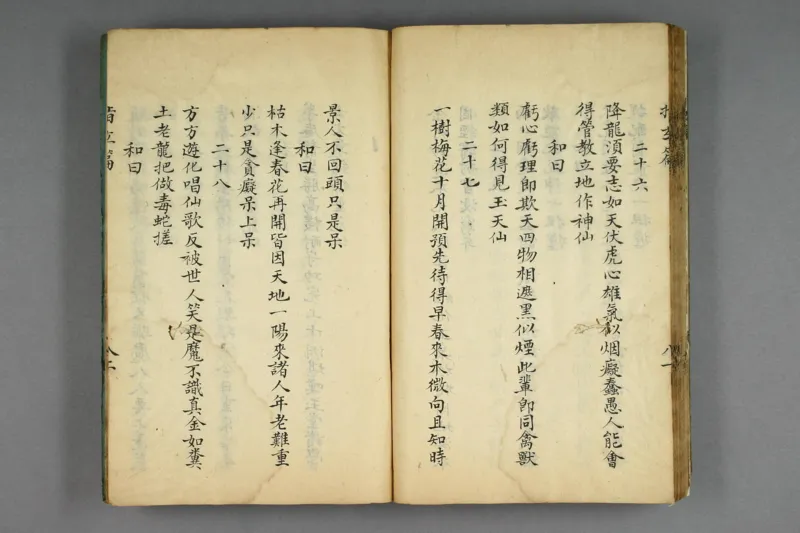 二十六
降龍湏要志如天伏虎心雄氣似烟癡蠢愚人能會
得管教立地作神仙
和曰
虧心虧理即欺天四物相遮黑似煙此輩即同禽獸
類如何得見玉天仙
二十七
一樹梅花十月開預先待得早春來木微向且知時
景人不回頭只是呆
和曰
枯木逢春花再開皆因天地一陽來諸人年老難重
少只是貪癡呆上呆
二十八
方方遊化唱仙歌反被世人笑是魔不識真金如糞
土老龍把做毒蛇搓
和曰